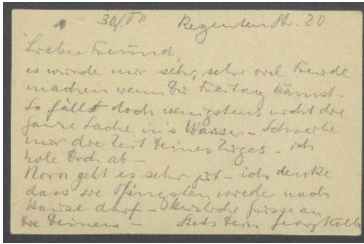 30/VII Regentenstr. 20
Lieber Freund,
es würde mir sehr, sehr viel Freude
machen wenn Du Freitag kämst.
So fällt doch wenigstens nicht die
ganze Sache ins Wasser - Schreibe
mir die Zeit Deines Zuges - ich
hole Dich ab -
geht es sehr gut - ich denke
dass sie wieder nach
Hause darf - Grüsse an
die Deinen - Stets Dein Georg Kolbe